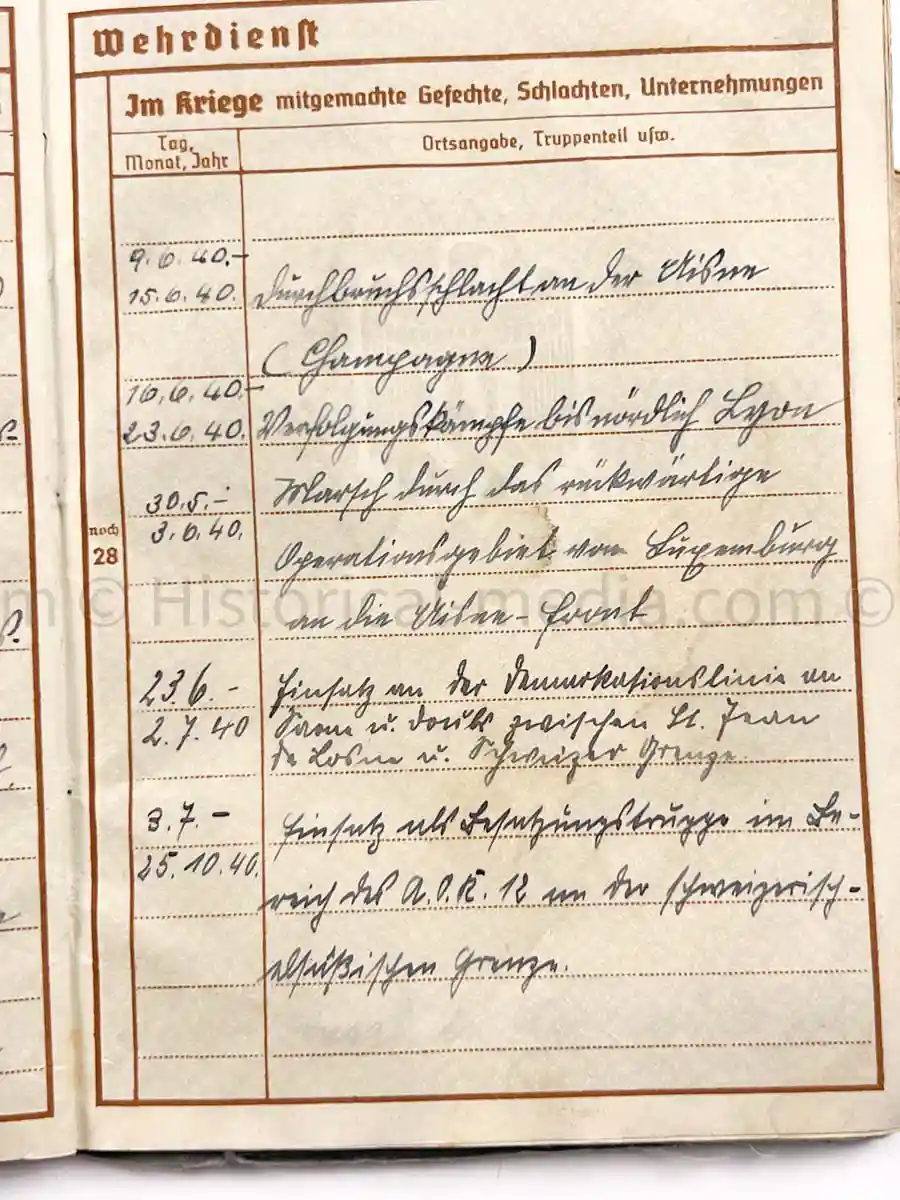 Wehrdienst
Im Kriege mitgemachte Gefechte, Schlachten, Unternehmungen
Tag, Monat, Jahr
Ortsangabe, Truppenteil usw.
9.6.40.-
15.6.40. Durchbruchsschlacht an der Aisne
(Champagne)
16.6.40.-
23.6.40. Verfolgungskämpfe bis nördlich Lyon
30.5.- Marsch durch das rückwärtige
noch
28
3.6.40.
Operationsgebiet von Luxemburg
an die Aisne-Front
© Historical-media.com ©
23.6.- Einsatz an der Demarkationslinie an
2.7.40 Saone u. Doubs zwischen St. Jean
de Losne u. Schweizer Grenze.
3.7.- Einsatz als Besatzungstruppe im Be-
25.10.40.
reich des A.O.K. 12 an der schweizerisch-
elsäßischen Grenze.